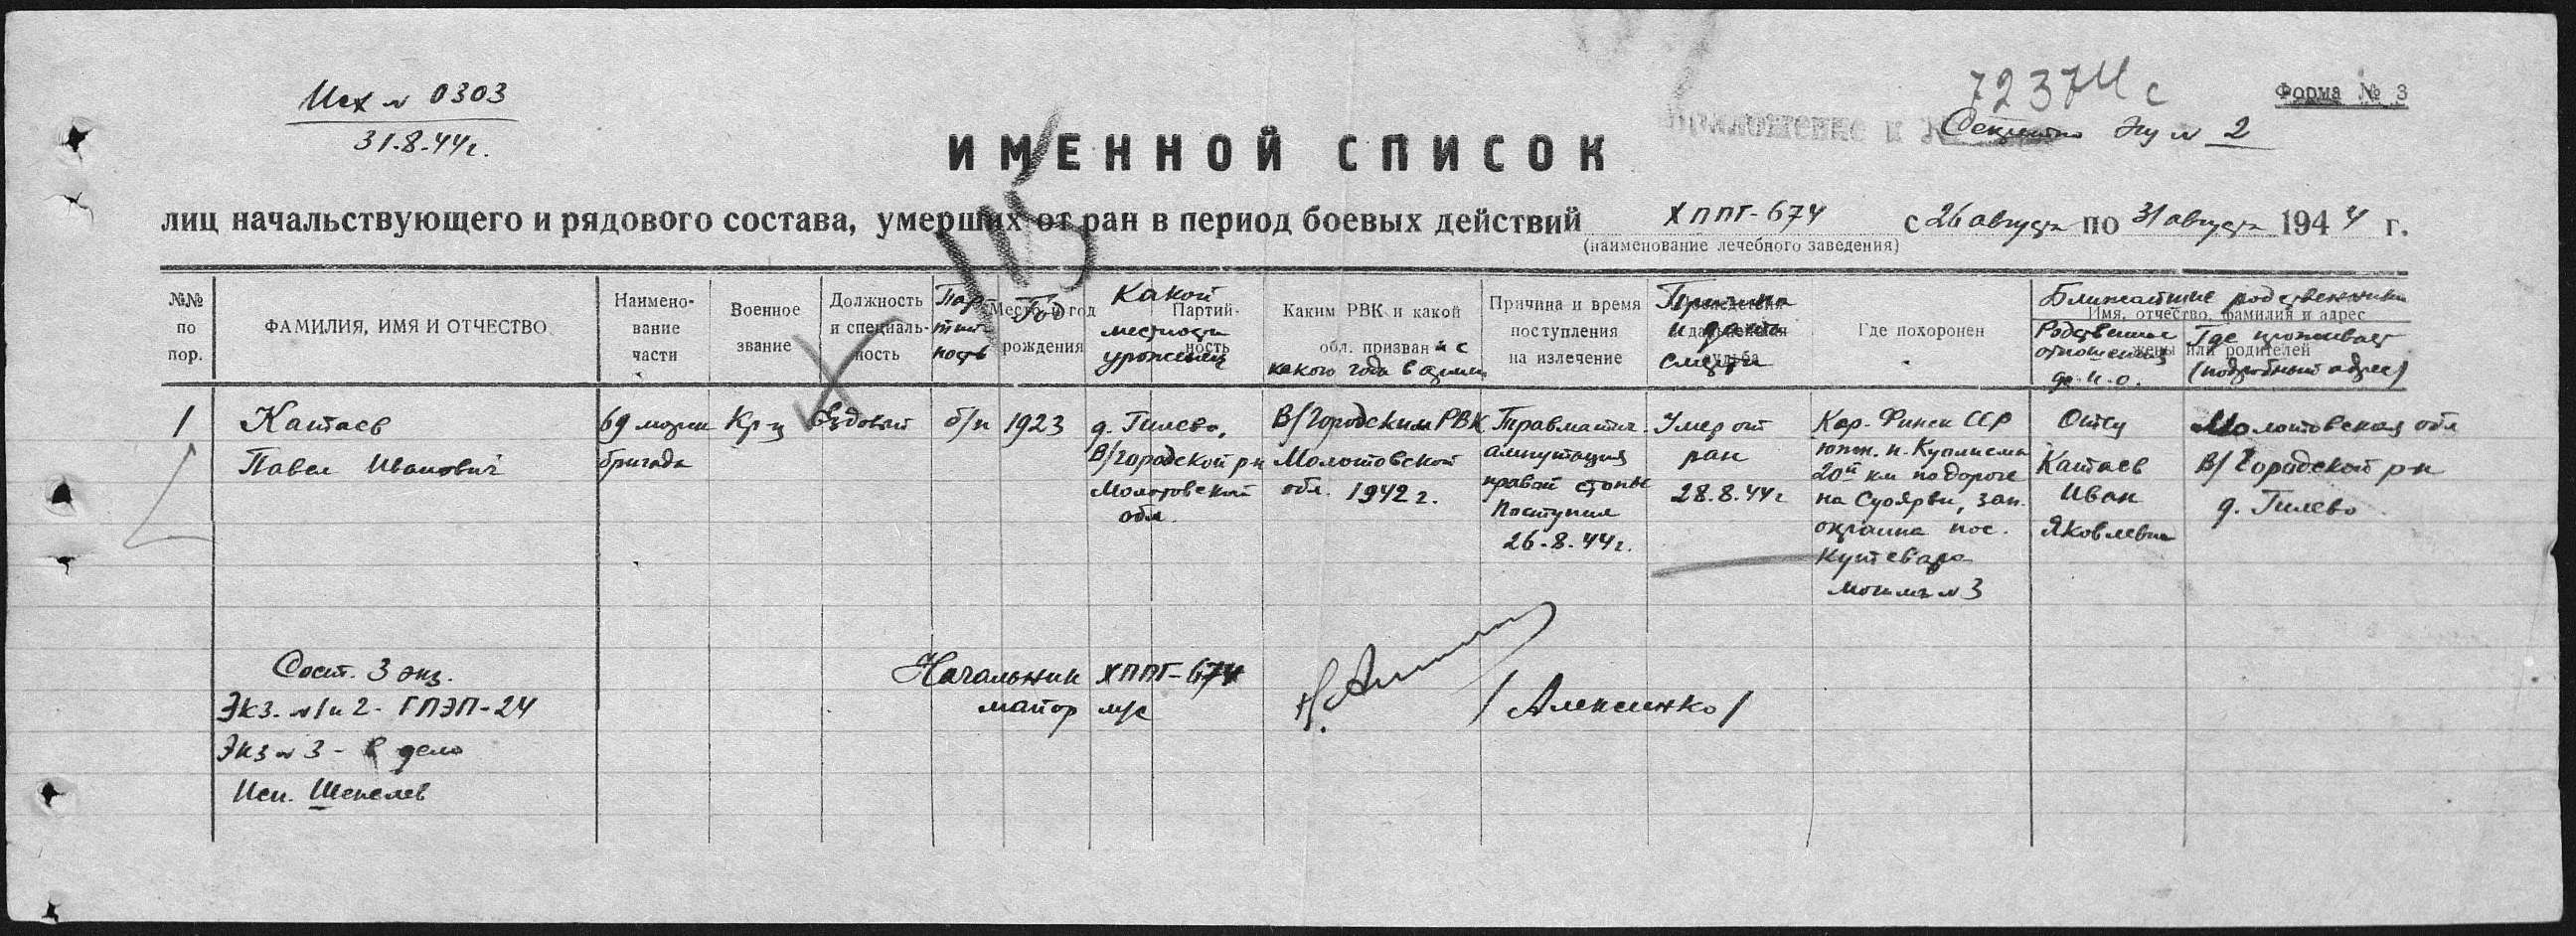 Исх № 0303
31.8.44г.
72374 с
Форма № 3
Приложение к №
Секретно Экз № 2
ИМЕННОЙ СПИСОК
115
лиц начальствующего и рядового состава, умерших от ран в период боевых действий ХППГ-674 с 26 августа по 31 августа 1944 г.
(наименование лечебного заведения)
№№ по пор.
ФАМИЛИЯ, ИМЯ И ОТЧЕСТВО
Наимено-
вание
части
Военное
звание
Должность
и специаль-
ность
Пар
тий
ность
Место и год
Год
рождения
Какой
местности
уроженец
Партий-
ность
Каким РВК и какой
обл. призван и с
какого года в армии
Причина и время
поступления
на излечение
Причина
и дата
смерти
Где похоронен
Ближайшие родственники
Имя, отчество, фамилия и адрес
жены или родителей
Родственные
отношения
ф.и.о.
Где проживает
(подробный адрес)
1
Катаев
Павел Иванович
69 морск
бригада
Кр-ц
Ездовый
б/п
1923
д. Гилево,
В/Городской рн
Молотовской
обл.
В/Городским РВК
Молотовской
обл. 1942 г.
Травматич.
ампутация
правой стопы
Поступил
26-8-44г.
Умер от
ран
28.8.44г
Кар-Финск ССР
южн. п. Куолисма
20й км по дороге
на Суоярви, зап.
окраина пос.
Кутсвара
могила № 3
Отец
Катаев
Иван
Яковлевич
Молотовская обл
В/Городской рн
д. Гилево
Сост. 3 экз.
Экз. №1 и 2 - ГПЭП-24
Экз № 3 - в дело
Исп. Шепелев
Начальник ХППГ-674
майор м/с
/ Алексинко /